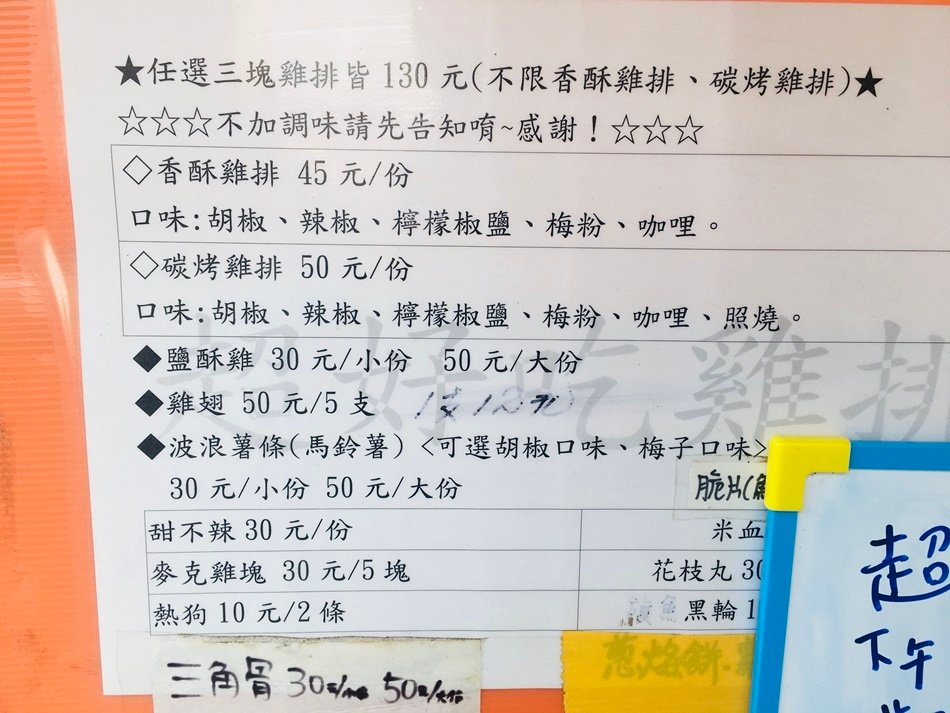 ★任選三塊雞排皆130元(不限香酥雞排、碳烤雞排)★
☆☆☆不加調味請先告知唷~感謝!☆☆☆
◇香酥雞排 45元/份
口味:胡椒、辣椒、檸檬椒鹽、梅粉、咖哩。
◇碳烤雞排 50元/份
口味:胡椒、辣椒、檸檬椒鹽、梅粉、咖哩、照燒。
超好吃雞排
◆鹽酥雞 30元/小份 50元/大份
◆雞翅 50元/5支 1支12元
◆波浪薯條(馬鈴薯)<可選胡椒口味、梅子口味>
30元/小份 50元/大份
脆片(
甜不辣30元/份 米血
麥克雞塊 30元/5塊 花枝丸30
熱狗10元/2條 黑輪1
三角骨30元/小份 50元/大份
蔥烙餅.
超
下午